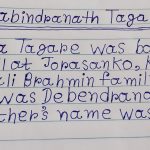 abindranath Taga
a Tagare was bo
lat Jorasanko,
li Brahmin famil
was Debendrana
ther's name was